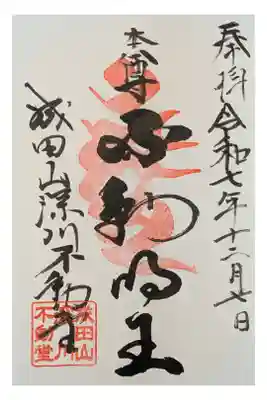 奉拝 令和七年十二月七日
本尊 不動明王
成田山深川不動堂